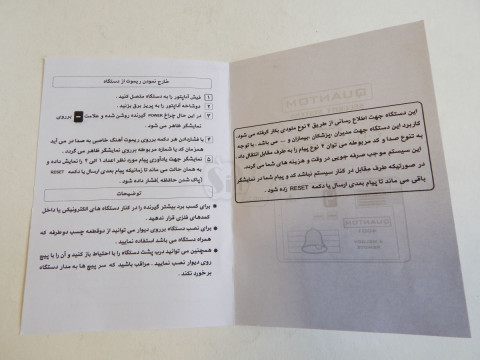 خارج نمودن ریموت از دستگاه
۱ فیش آداپتور را به دستگاه متصل کنید .
۲ دوشاخه آداپتور را به پریز برق بزنید .
۳ در این حال چراغ POWER گیرنده روشن شده و علامت – برروی
نمایشگر ظاهر می شود .
۴ با فشاردادن هر دکمه برروی ریموت آهنگ خاصی به صدا در می آید
همزمان کد یا شماره مربوطه برروی نمایشگر ظاهر می گردد .
۵ نمایشگر جهت یادآوری پیام مورد نظر اعداد ۱ الی ۴ را نمایش داده و
به همان حالت می ماند تا زمانیکه پیام بعدی ارسال یا دکمه RESET
(پاک شدن حافظه )فشار داده شود .
توضیحات
● برای کسب برد بیشتر گیرنده را در کنار دستگاه های الکترونیکی یا داخل
کمدهای فلزی قرار ندهید .
● برای نصب دستگاه برروی دیوار می توانید از دوقطعه چسب دوطرفه که
همراه دستگاه می باشد استفاده نمایید .
● همچنین می توانید درب پشت دستگاه را با احتیاط باز کنید و آن را با پیچ
روی دیوار نصب نمایید . مراقب باشید که سر پیچ ها به مدار دستگاه
برخورد نکند .
این دستگاه جهت اطلاع رسانی از طریق ۴ نوع ملودی بکار گرفته می شود
کاربرد این دستگاه جهت مدیران ،پزشکان ،بیماران و ... می باشد . با توجه
به تنوع صدا و کد مربوطه می توان ۴ نوع پیام را به طرف مقابل انتقال داد
این سیستم موجب صرفه جویی در وقت و هزینه های شما می گردد .
در صورتیکه طرف مقابل در کنار سیستم نباشد کد و پیام شما در نمایشگر
باقی می ماند تا پیام بعدی ارسال یا دکمه RESET زده شود .